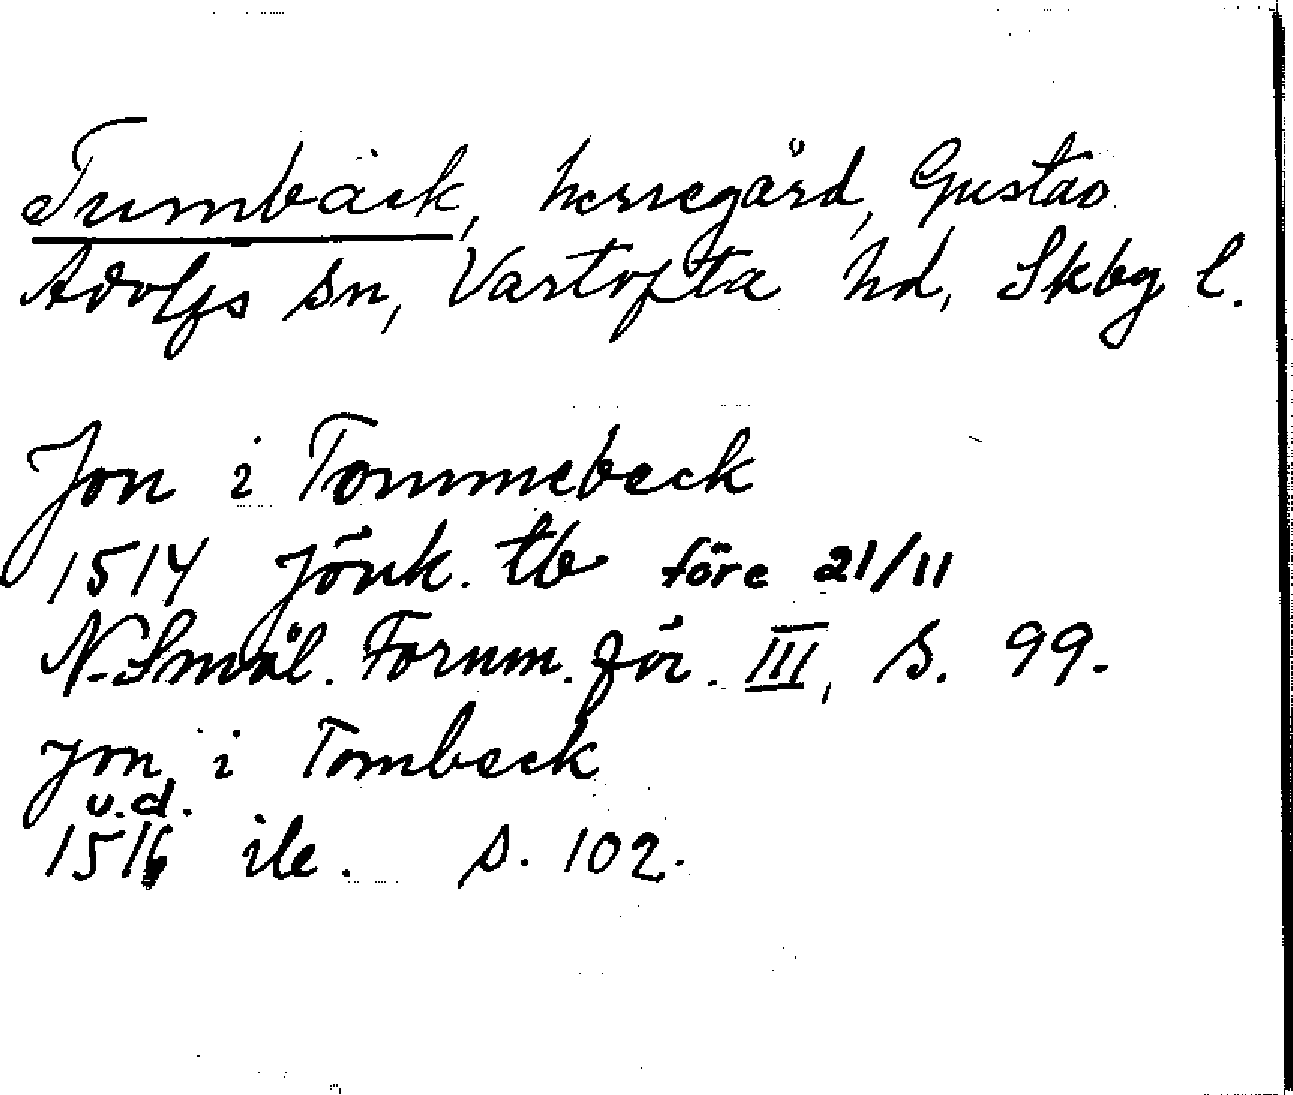 Tumbäck, herregård, Gustav
Adolfs sn, Vartofta hd, Skbg l.
Jon i Tommebeck
1514 Jönk. tb före 21/11
N. Smål. Fornm. för. III, s. 99.
Jon i Tombeck
u.d.
1516 ib. s. 102.